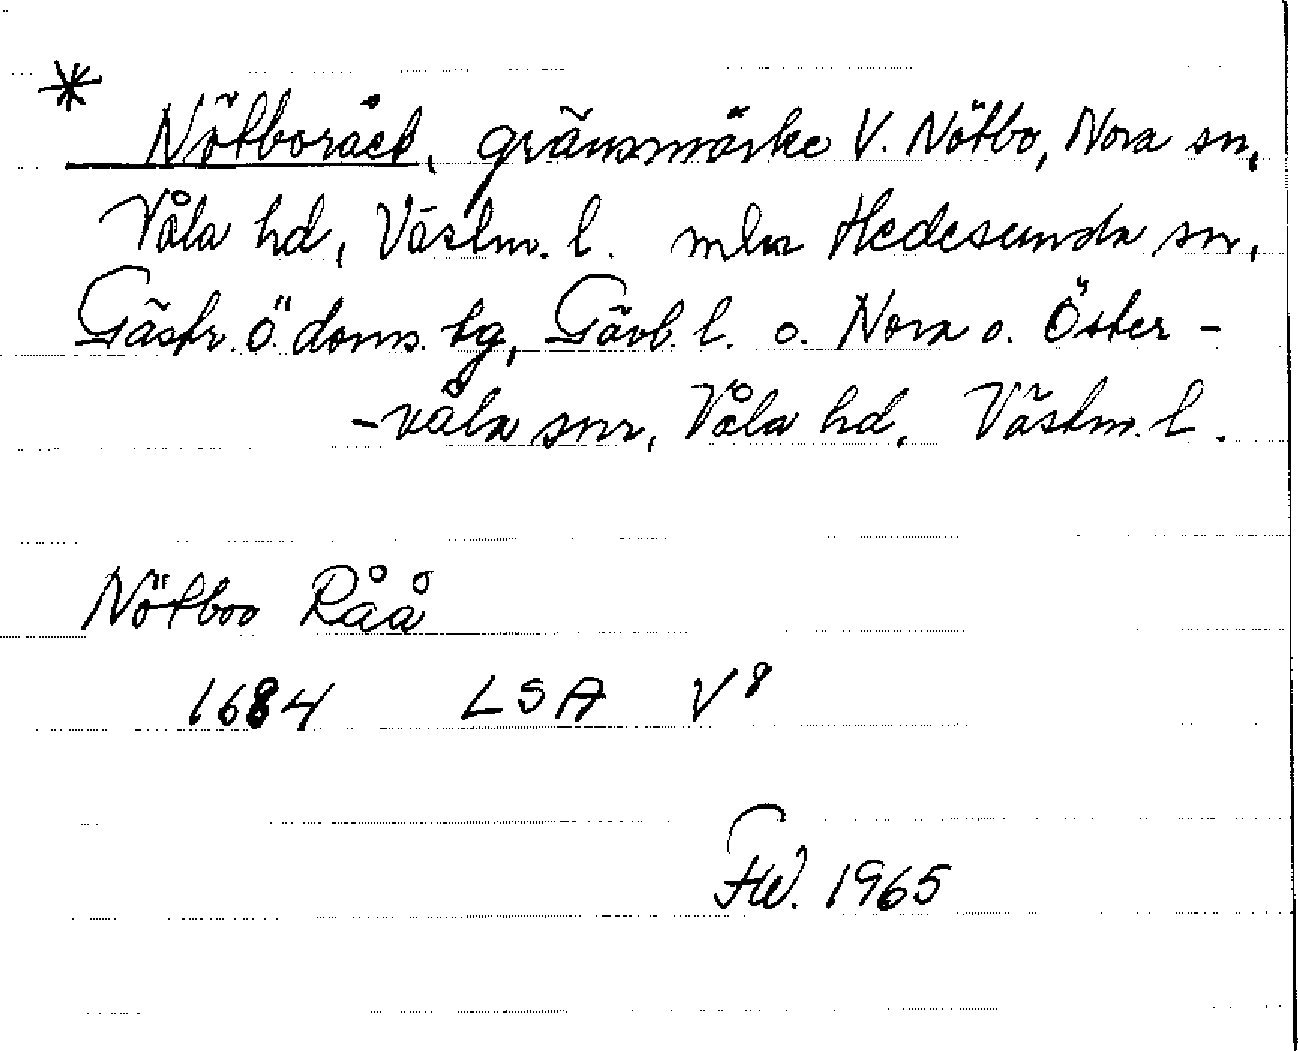 * Nötboråët, gränsmärke V. Nötbo, Nora sn,
Våla hd, Västm. l. mln Hedesunda sn,
Gästr. ö. doms. tg, Gävl. l. o. Nora o. Öster-
-våla snr, Våla hd, Västm. l.
Nötboo Råå
1684 LSA V8
FW. 1965